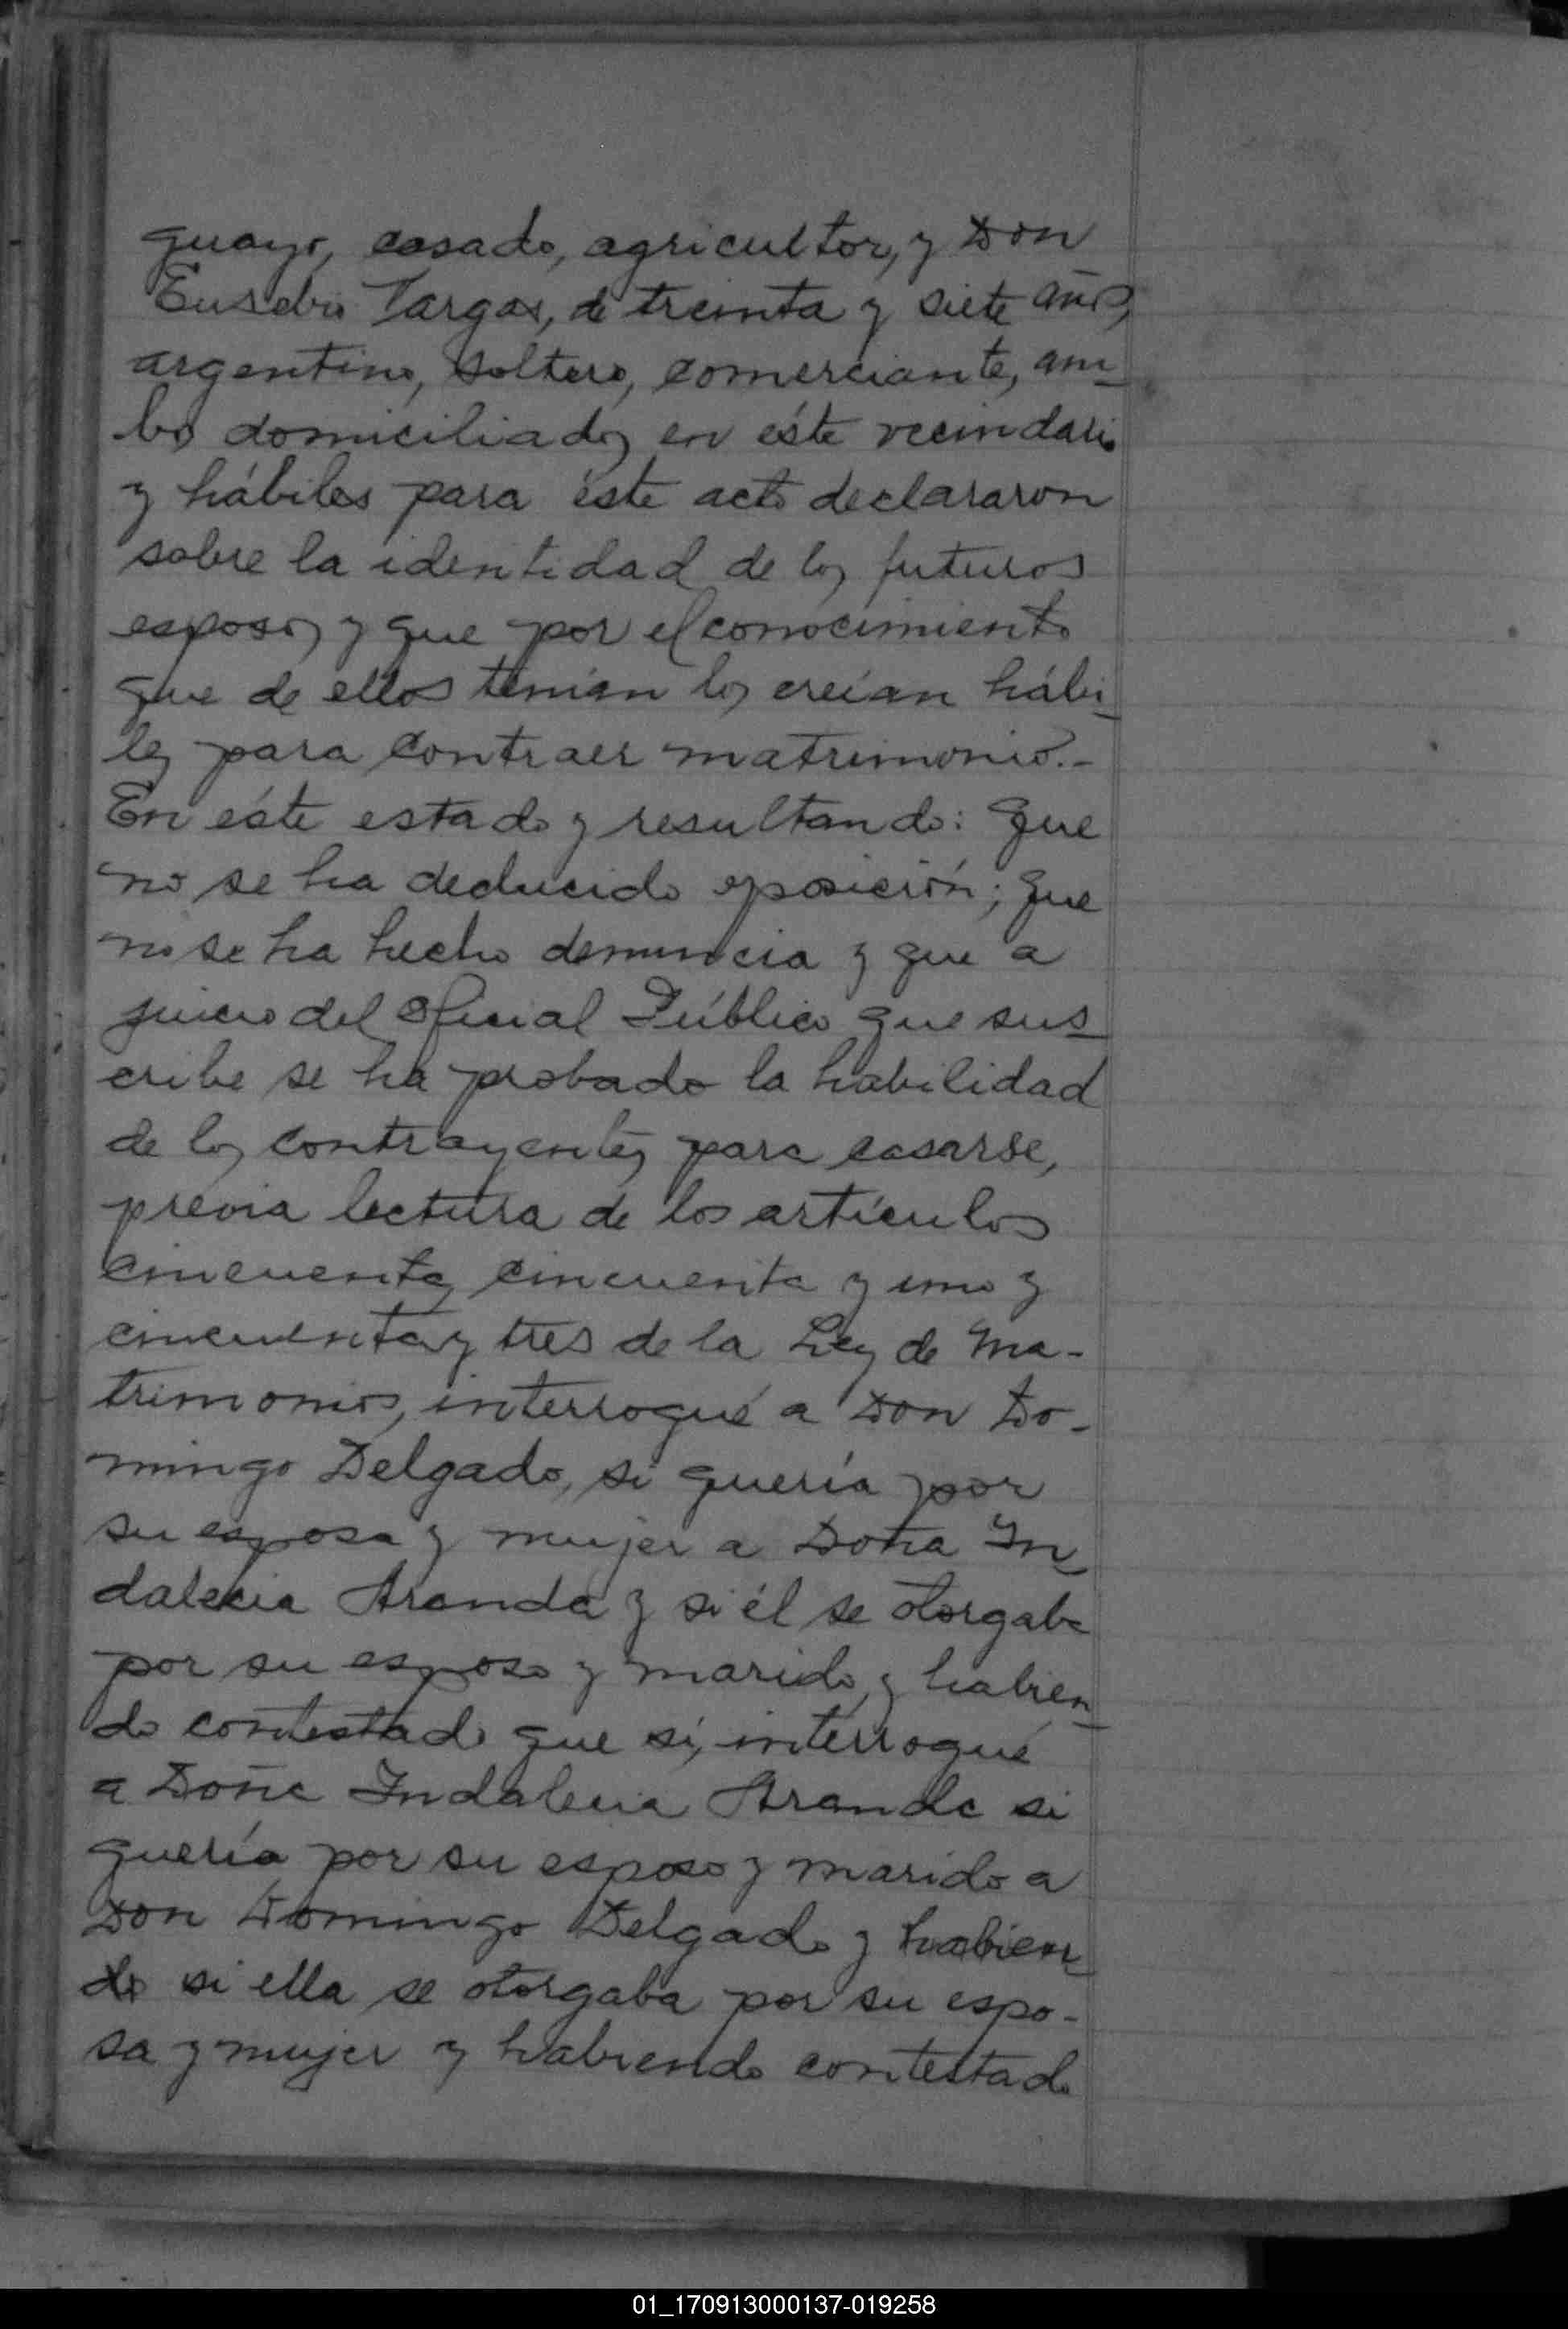 guayo, casado, agricultor, y Don
Eusebio Vargas, de treinta y siete años,
argentino, soltero, comerciante, am-
bos domiciliados en éste vecindario
y hábiles para éste acto declararon
sobre la identidad de los futuros
esposos y que por el conocimiento
que de ellos tenían los creían hábi-
les para contraer matrimonio.-
En éste estado y resultando: Que
no se ha deducido oposición; Que
no se ha hecho denuncia y que a
juicio del Oficial Público que sus-
cribe se ha probado la habilidad
de los contrayentes para casarse,
previa lectura de los artículos
cincuenta, cincuenta y uno y
cincuenta y tres de la Ley de Ma-
trimonios, interrogué a Don Do-
mingo Delgado, si quería por
su esposa y mujer a Doña In-
dalecia Aranda y si él se otorgaba
por su esposo y marido, y habien-
do contestado que si, interrogué
a Doña Indalecia Aranda si
quería por su esposo y marido a
Don Domingo Delgado y habien-
do si ella se otorgaba por su espo-
sa y mujer y habiendo contestado
01_170913000137-019258